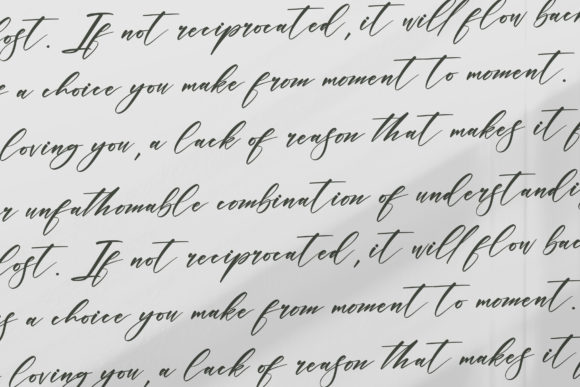 lost. If not reciprocated, it will flow back
a choice you make from moment to moment.
loving you, a lack of reason that makes it f
r unfathomable combination of understandi
lost. If not reciprocated, it will flow bac
s a choice you make from moment to moment.
loving you, a lack of reason that makes it f